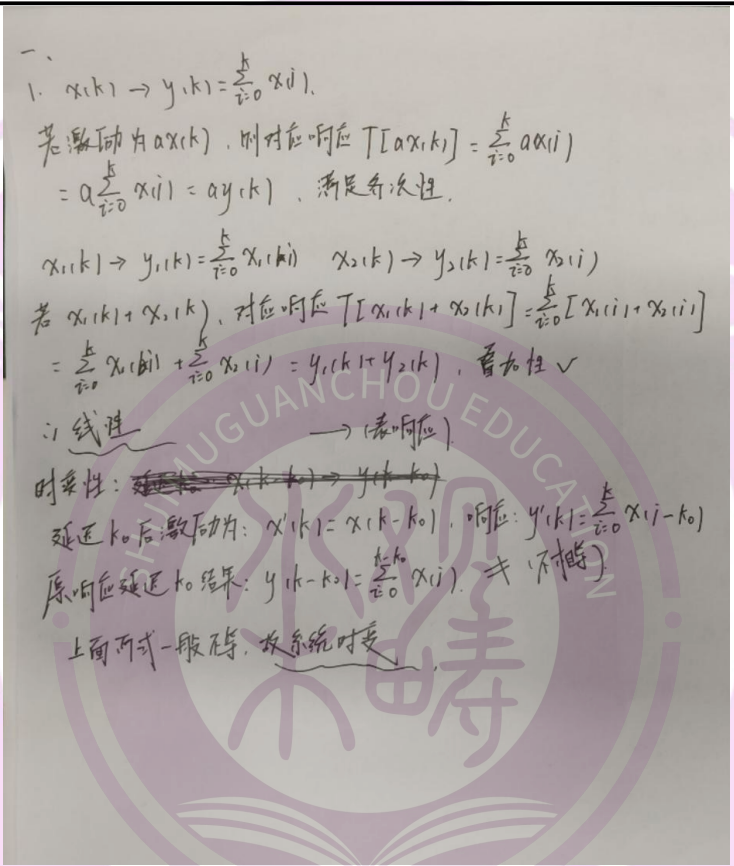 一、
1. x(k) → y(k) = ∑_{i=0}^{k} x(i).
若激励为 ax(k), 则对应响应 T[ax(k)] = ∑_{i=0}^{k} ax(i)
= a∑_{i=0}^{k} x(i) = ay(k), 满足齐次性.
x₁(k) → y₁(k) = ∑_{i=0}^{k} x₁(i) x₂(k) → y₂(k) = ∑_{i=0}^{k} x₂(i)
若 x₁(k) + x₂(k), 对应响应 T[x₁(k) + x₂(k)] = ∑_{i=0}^{k} [x₁(i) + x₂(i)]
= ∑_{i=0}^{k} x₁(i) + ∑_{i=0}^{k} x₂(i) = y₁(k) + y₂(k), 叠加性 ✓
∴ 线性 → (表响应)
时变性: x(k-k₀) → y(k-k₀)
延迟 k₀ 后激励为: x'(k) = x(k-k₀), 响应: y'(k) = ∑_{i=0}^{k} x(i-k₀)
原响应延迟 k₀ 结果: y(k-k₀) = ∑_{i=0}^{k-k₀} x(i). ≠ (不相等)
上面两式一般不等, 故系统时变.
SHUIMUGUANCHOU EDUCATION
水木观畴